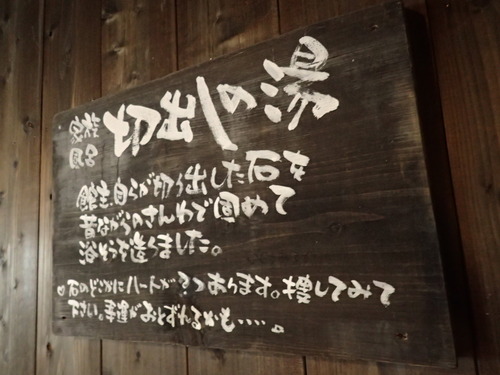 家族
風呂
切出しの湯
館主自らが切り出した石を
昔ながらのさんわで固めて
浴そうを造りました。
石のどこかにハートが3つあります。捜してみて
下さい。幸運がおとずれるかも……。